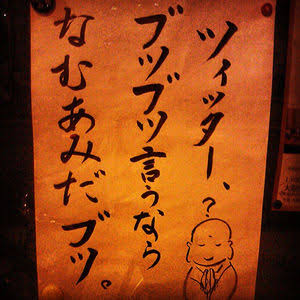 ツイッター、?
ブツブツ言うなら
なむあみだブツ。